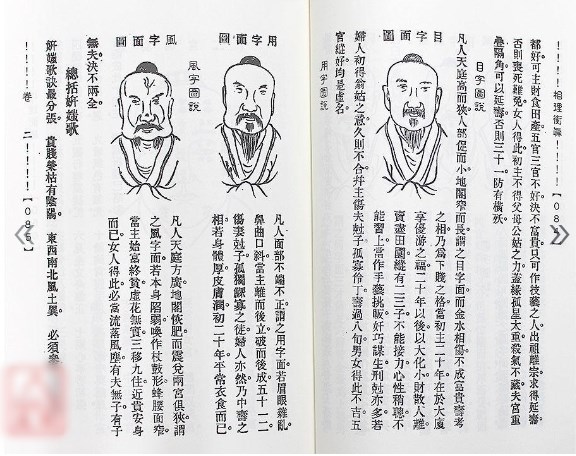 ！！！！相理衡眞！！！！【08
都好可主財食田產五官三官不好決不富貴只可作技藝之人出祖離宗求得延壽
否則喪死難免女人得此初主不得父母公姑之力蓋緣孤星太重殺氣不藏夫宮重
疊隔角可以延壽否則三十一防有橫殀
目字圖說
目字面圖
凡人天庭高而狹人部偪而小地閣窄而長謂之目字面而金水相傷不成富貴壽考
之相乃為下賤之格當初主二十年在於大廈
享優游之福二十年以後以大化小財散人離
賣盡田園縱有二三子不能接力心性稍聰不
能習上當作手藝挑販奸巧謀生刑尅亦多若
婦人初得翁姑之意久則不合幷主傷夫尅子孤寡伶丁壽過八旬男女得此不吉五
官縱好均是虛名
用字圖說
用字面圖
凡人面部不端不正謂之用字面若眉眼雜亂
鼻曲口斜當主離而後立破而後成五十一二
傷妻尅子孤獨鰥寡之徒婦人亦然乃中壽之
相若身體厚皮膚潤初二十年平常衣食而已
風字圖說
風字面圖
凡人天庭方廣地閣恢肥而震兌兩宮俱狹謂
之風字面若本身陷弱喚作杖鼓形蜂腰面窄
當主始富終貧虛花無實三移九住近貴安身
而已女人得此必當流落風塵有夫無子有子
無夫決不兩全
總括妍媸歌
妍媸歌訣最分張 貴賤榮枯有陰陽 東西南北風土異 必須
！！！！卷 二！！！！【08